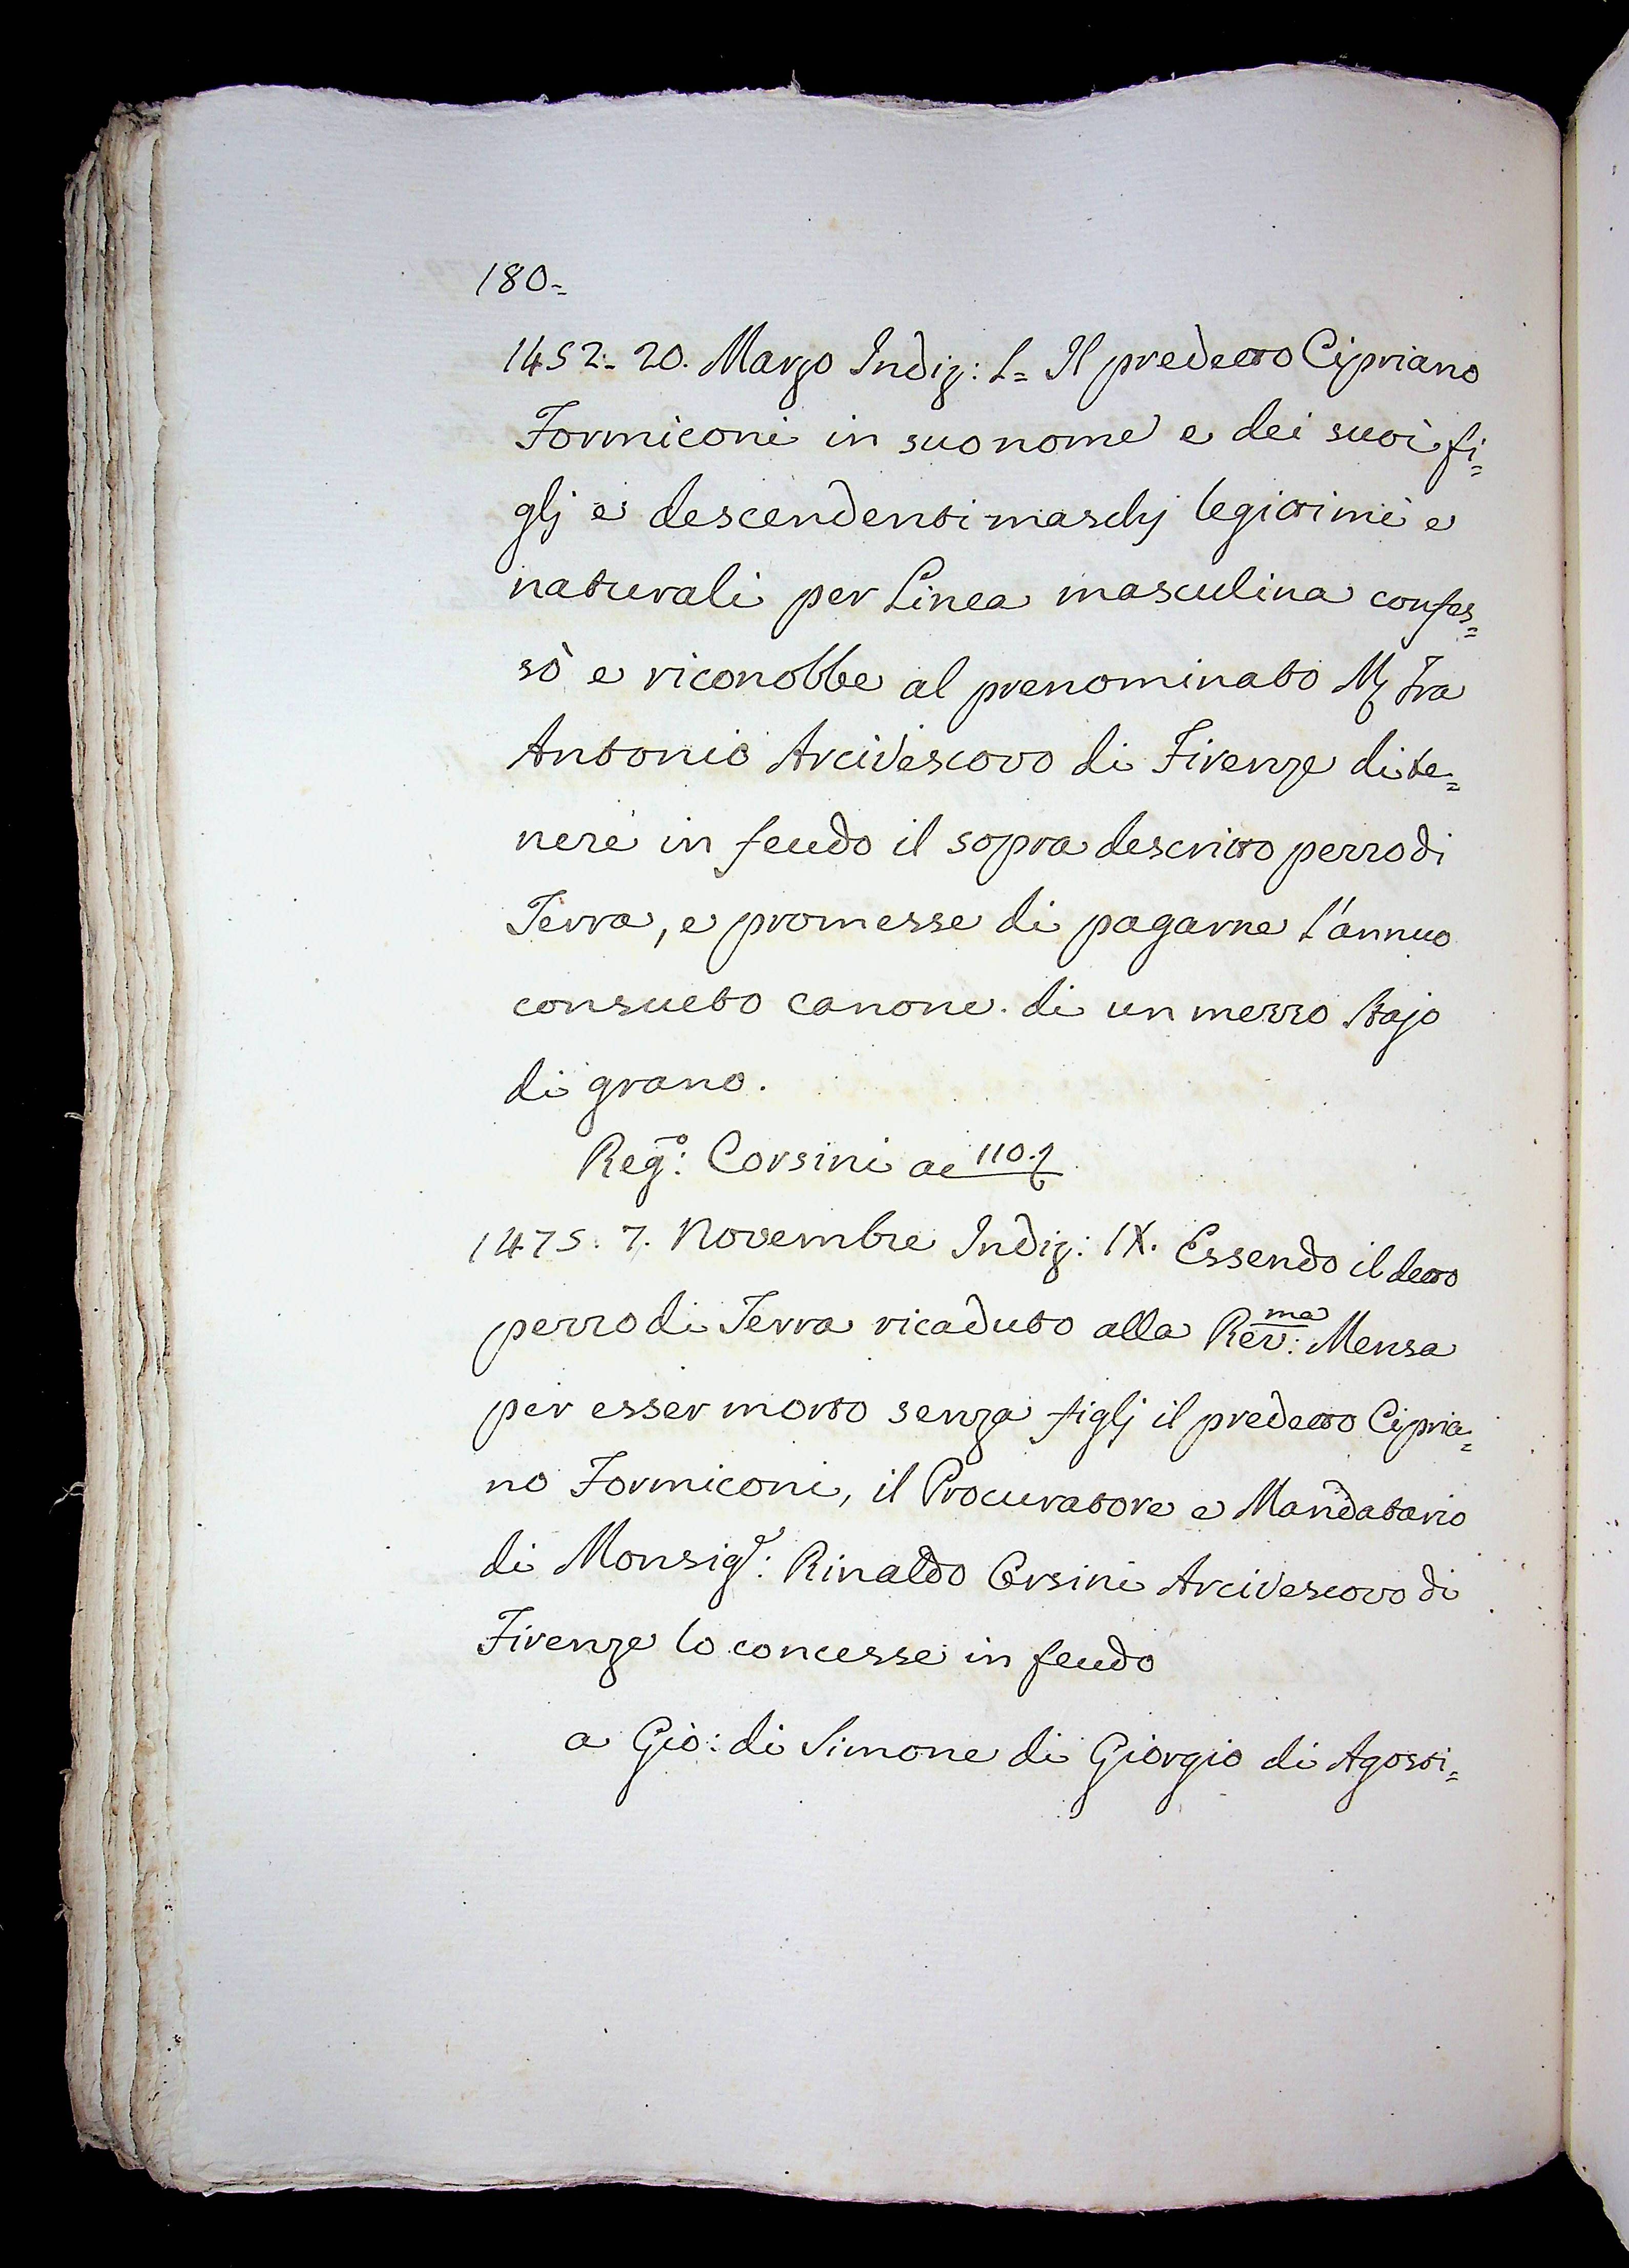 180=
1452=. 20. Marzo Indiz: I= Il predetto Cipriano
Formiconi in suo nome e dei suoi fi=
glj e descendenti maschj legittimi e
naturali per Linea masculina confes=
sò e riconobbe al prenominato M Fra
Antonio Arcivescovo di Firenze di te=
nere in feudo il sopra descritto pezzo di
Terra, e promesse di pagarne l'annuo
consueto canone di un mezzo Stajo
di grano.
Reg:º Corsini ac 110.
1475. 7. Novembre Indiz: IX. Essendo il detto
pezzo di Terra ricaduto alla Rev:ma Mensa
per esser morto senza figlj il predetto Cipria=
no Formiconi, il Procuratore e Mandatario
di Monsigr: Rinaldo Orsini Arcivescovo di
Firenze lo concesse in feudo
a Gio: di Simone di Giorgio di Agosti=